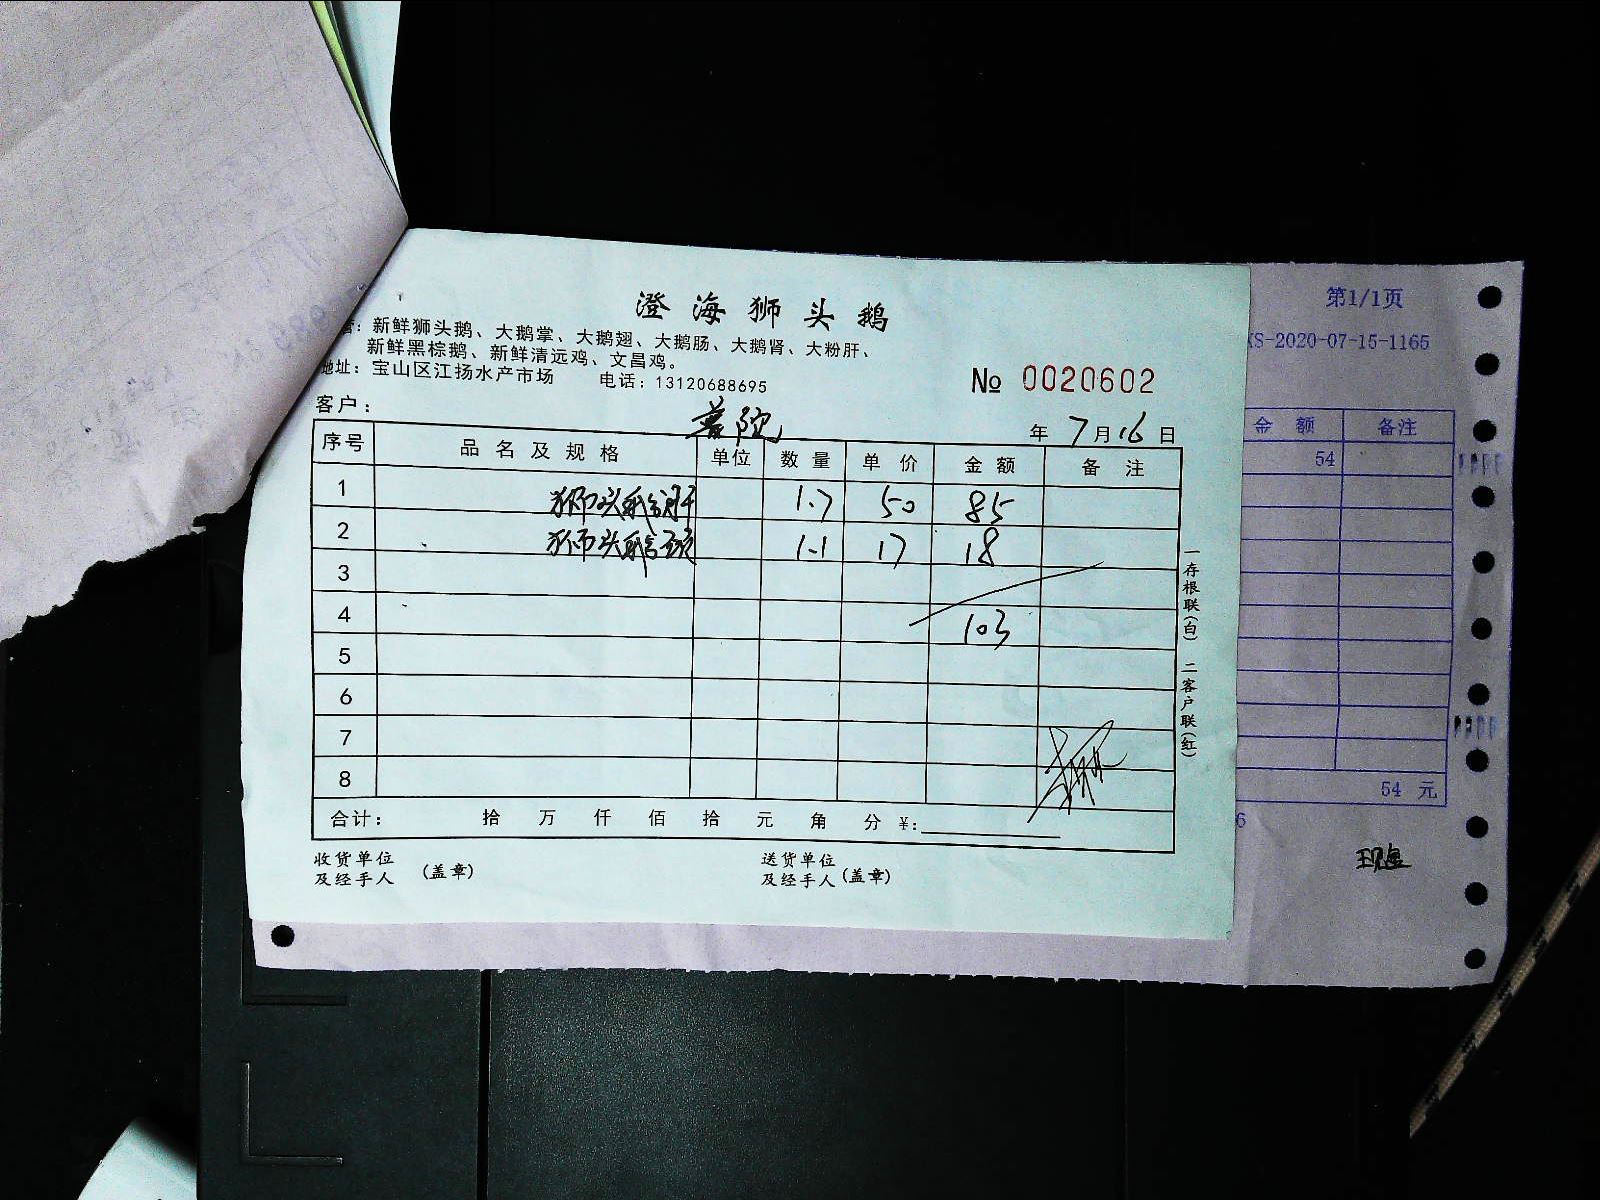 澄海狮头鹅
营：新鲜狮头鹅、大鹅掌、大鹅翅、大鹅肠、大鹅肾、大粉肝、
新鲜黑棕鹅、新鲜清远鸡、文昌鸡。
地址：宝山区江扬水产市场 电话：13120688695
№ 0020602
客户： 普陀 年 7 月 16 日
序号 品名及规格 单位 数量 单价 金额 备注
1 狮头鹅肝 1.7 50 85
2 狮头鹅颈 1.1 17 18
3
4 103
5
6
7
8
合计： 拾 万 仟 佰 拾 元 角 分 ¥:
收货单位
及经手人 (盖章)
送货单位
及经手人 (盖章)
一存根联(白) 二客户联(红)
第1/1页
XS-2020-07-15-1165
金额 备注
54
54 元
6